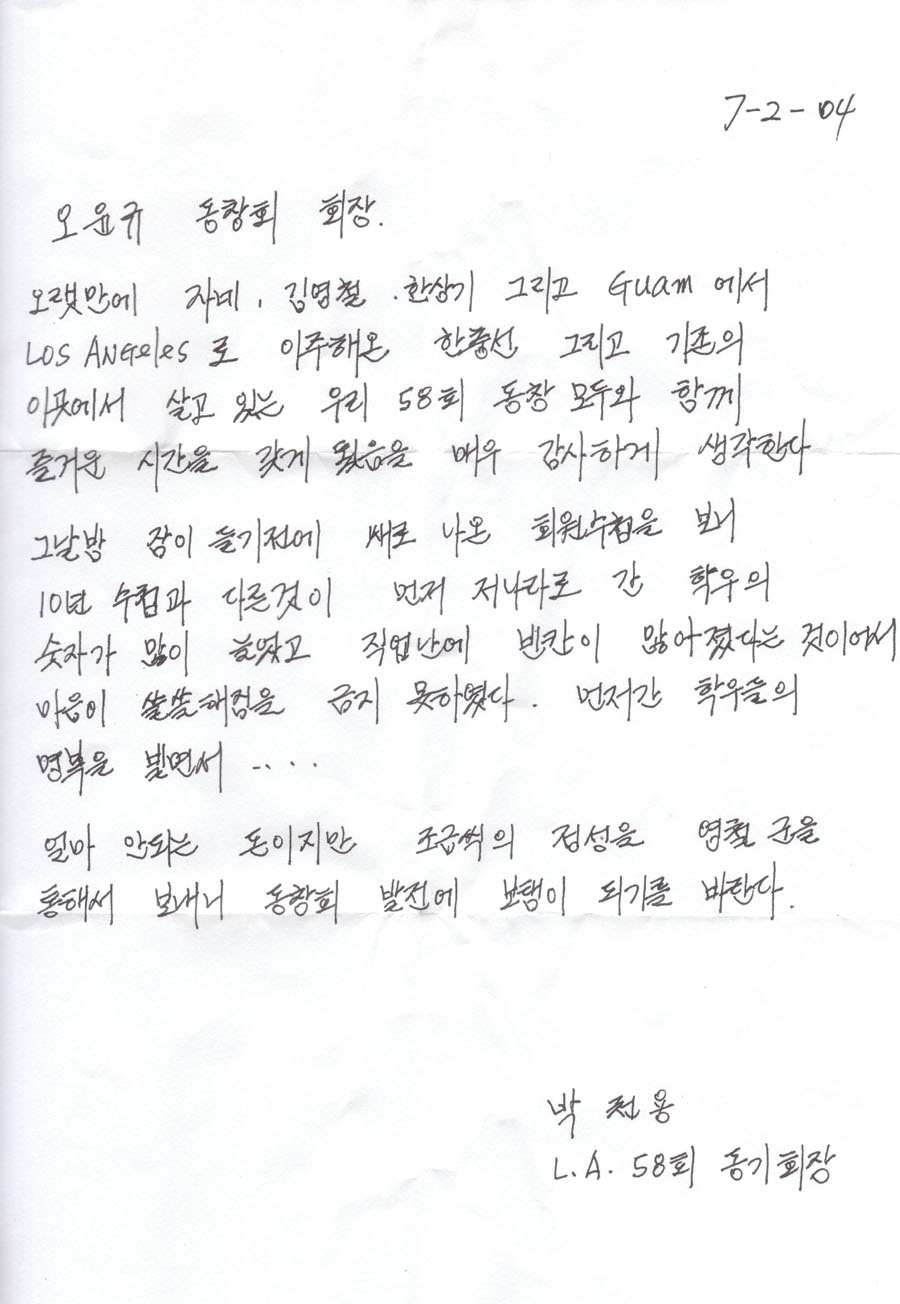 7-2-04
오윤규 동창회 회장.
오랫만에 자네, 김영철, 한상기 그리고 Guam 에서
LOS ANGeles 로 이주해온 한중선 그리고 기존의
이곳에서 살고 있는 우리 58회 동창 모두와 함께
즐거운 시간을 갖게 됬음을 매우 감사하게 생각한다
그날밤 잠이 들기전에 새로 나온 회원수첩을 보니
10년 수첩과 다른것이 먼저 저나라로 간 학우의
숫자가 많이 늘었고 직업난에 빈칸이 많아졌다는 것이어서
마음이 쓸쓸해짐을 금치 못하였다. 먼저간 학우들의
명복을 빌면서 ....
얼마 안되는 돈이지만 조금씩의 정성을 영철 군을
통해서 보내니 동창회 발전에 보탬이 되기를 바란다.
박 전용
L.A. 58회 동기회장